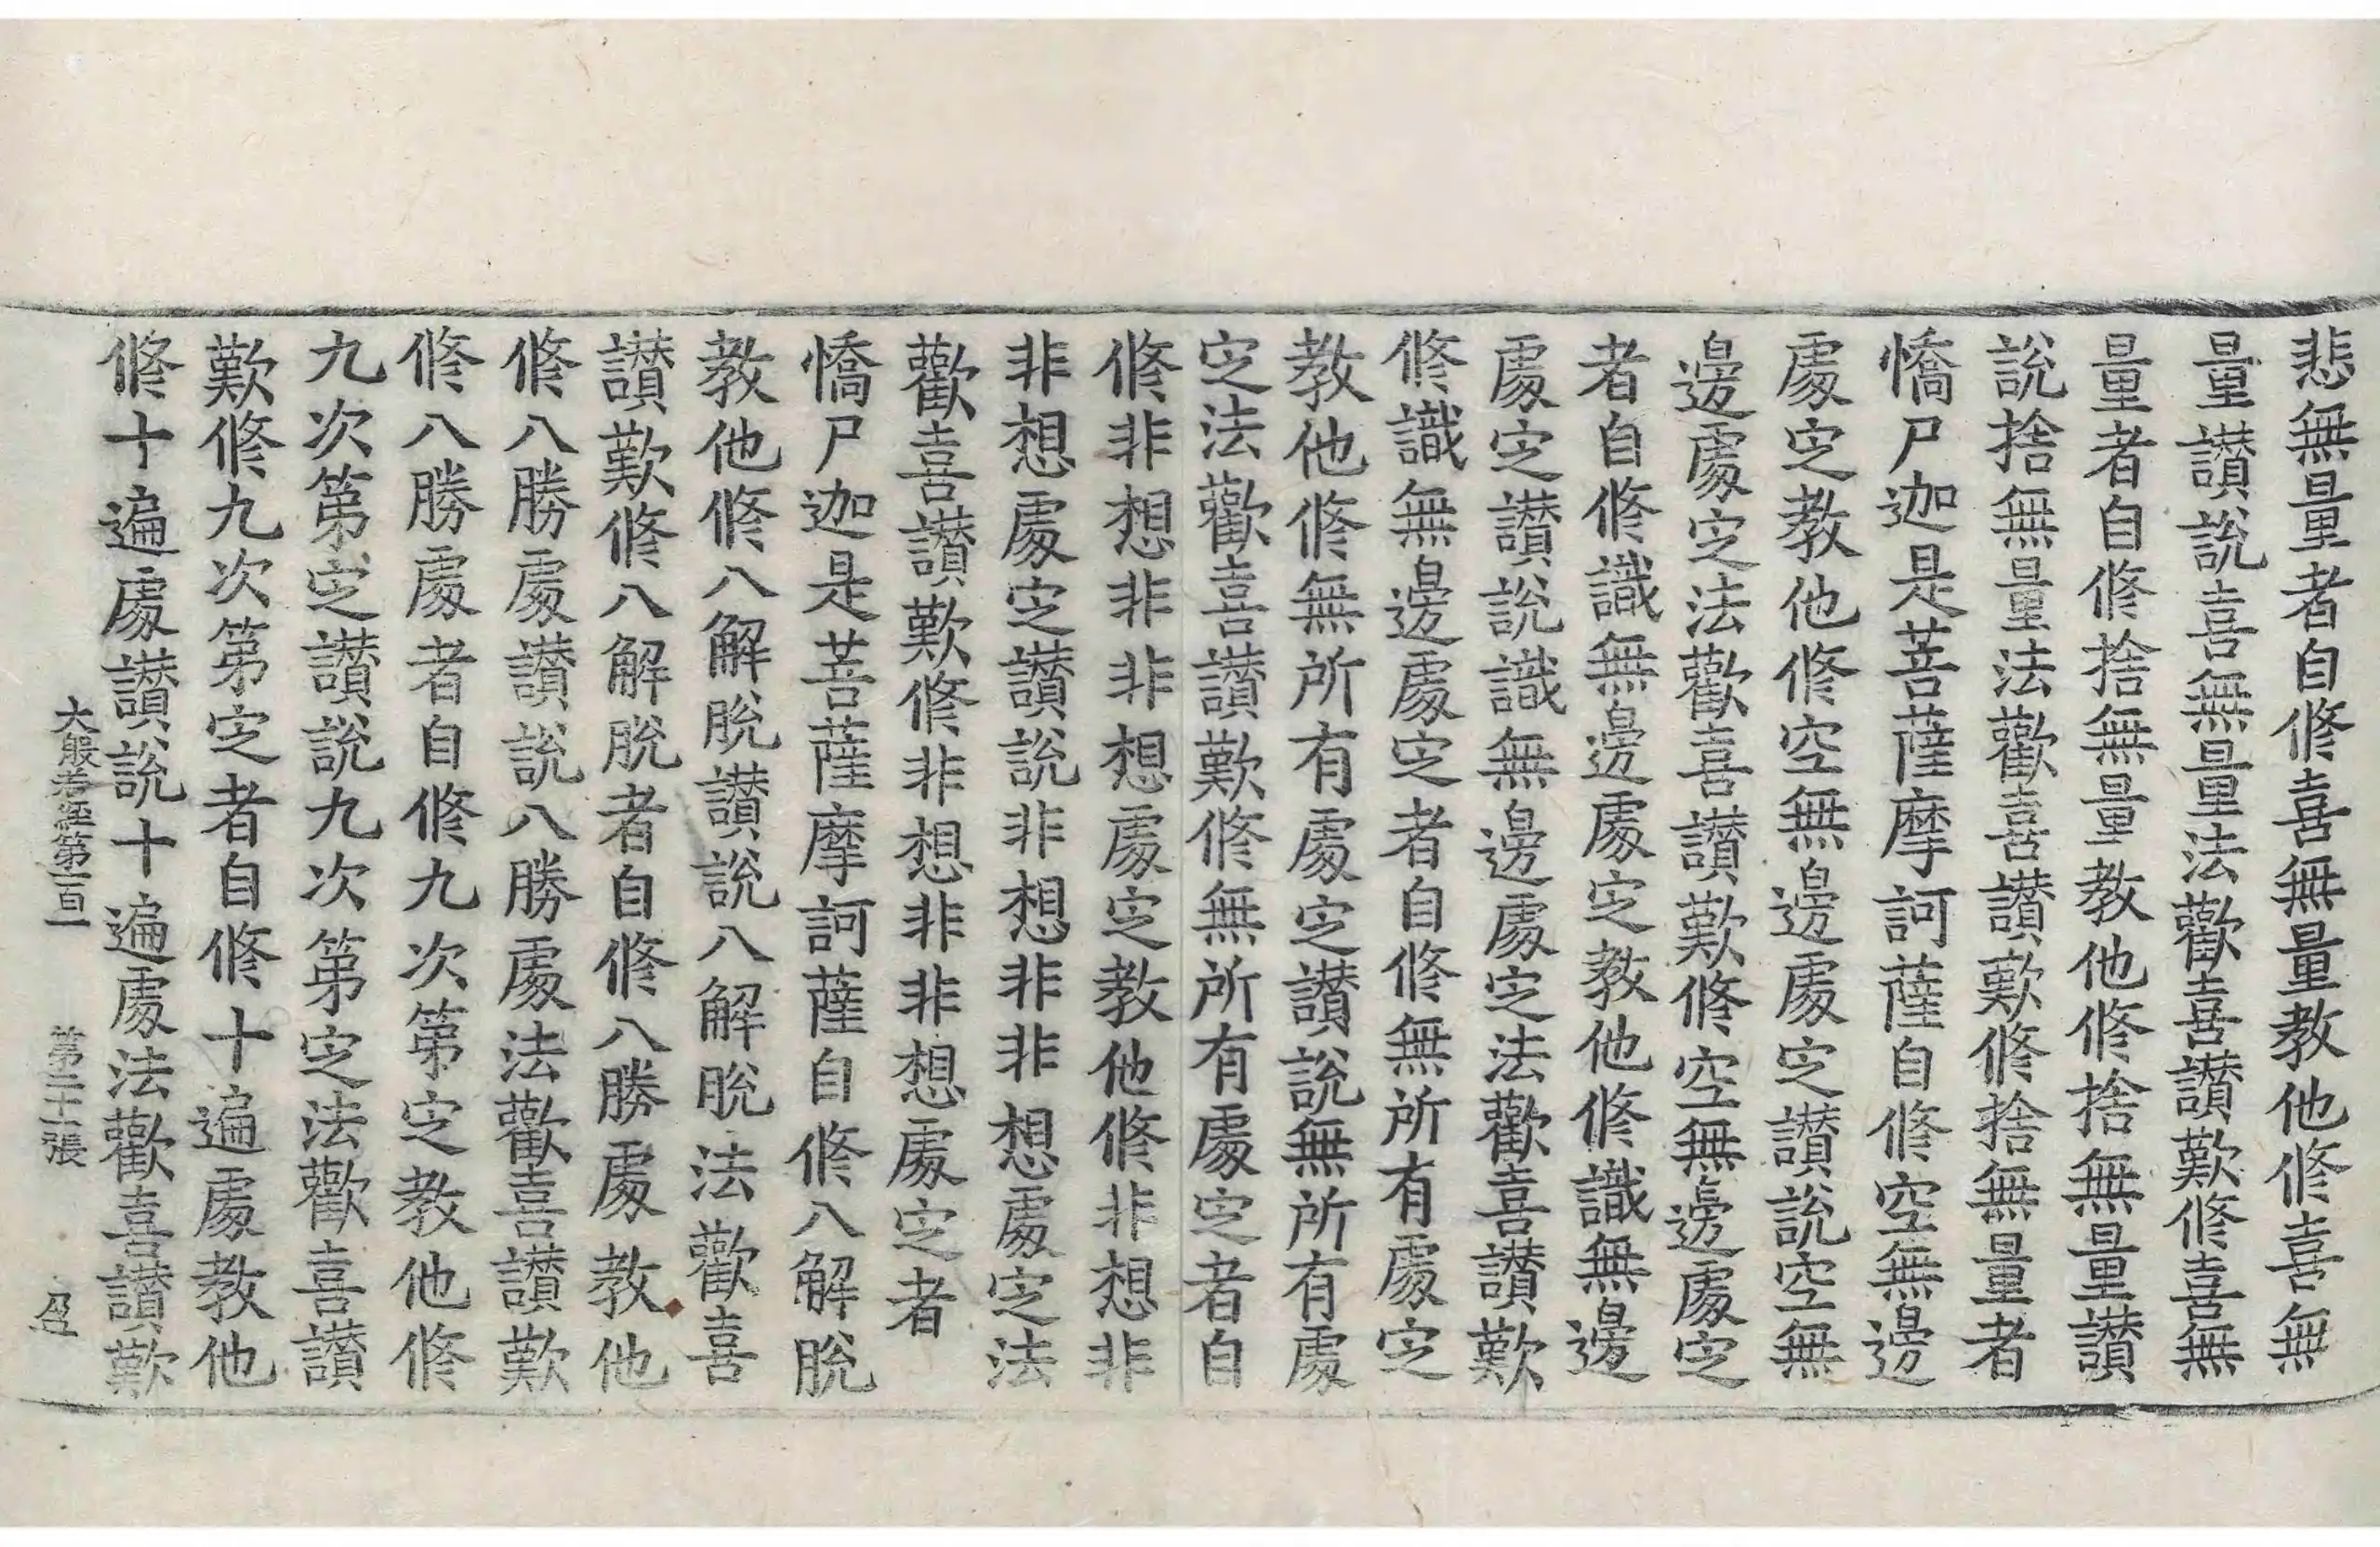 悲無量者自修喜無量教他修喜無
量讃說喜無量法歡喜讃歎修喜無
量者自修捨無量教他修捨無量讃
說捨無量法歡喜讃歎修捨無量者
憍尸迦是菩薩摩訶薩自修空無邊
處定教他修空無邊處定讃說空無
邊處定法歡喜讃歎修空無邊處定
者自修識無邊處定教他修識無邊
處定讃說識無邊處定法歡喜讃歎
修識無邊處定者自修無所有處定
教他修無所有處定讃說無所有處
定法歡喜讃歎修無所有處定者自
修非想非非想處定教他修非想非
非想處定讃說非想非非想處定法
歡喜讃歎修非想非非想處定者
憍尸迦是菩薩摩訶薩自修八解脫
教他修八解脫讃說八解脫法歡喜
讃歎修八解脫者自修八勝處教他
修八勝處讃說八勝處法歡喜讃歎
修八勝處者自修九次第定教他修
九次第定讃說九次第定法歡喜讃
歎修九次第定者自修十遍處教他
修十遍處讃說十遍處法歡喜讃歎
大般若經第一百一 第二十二張